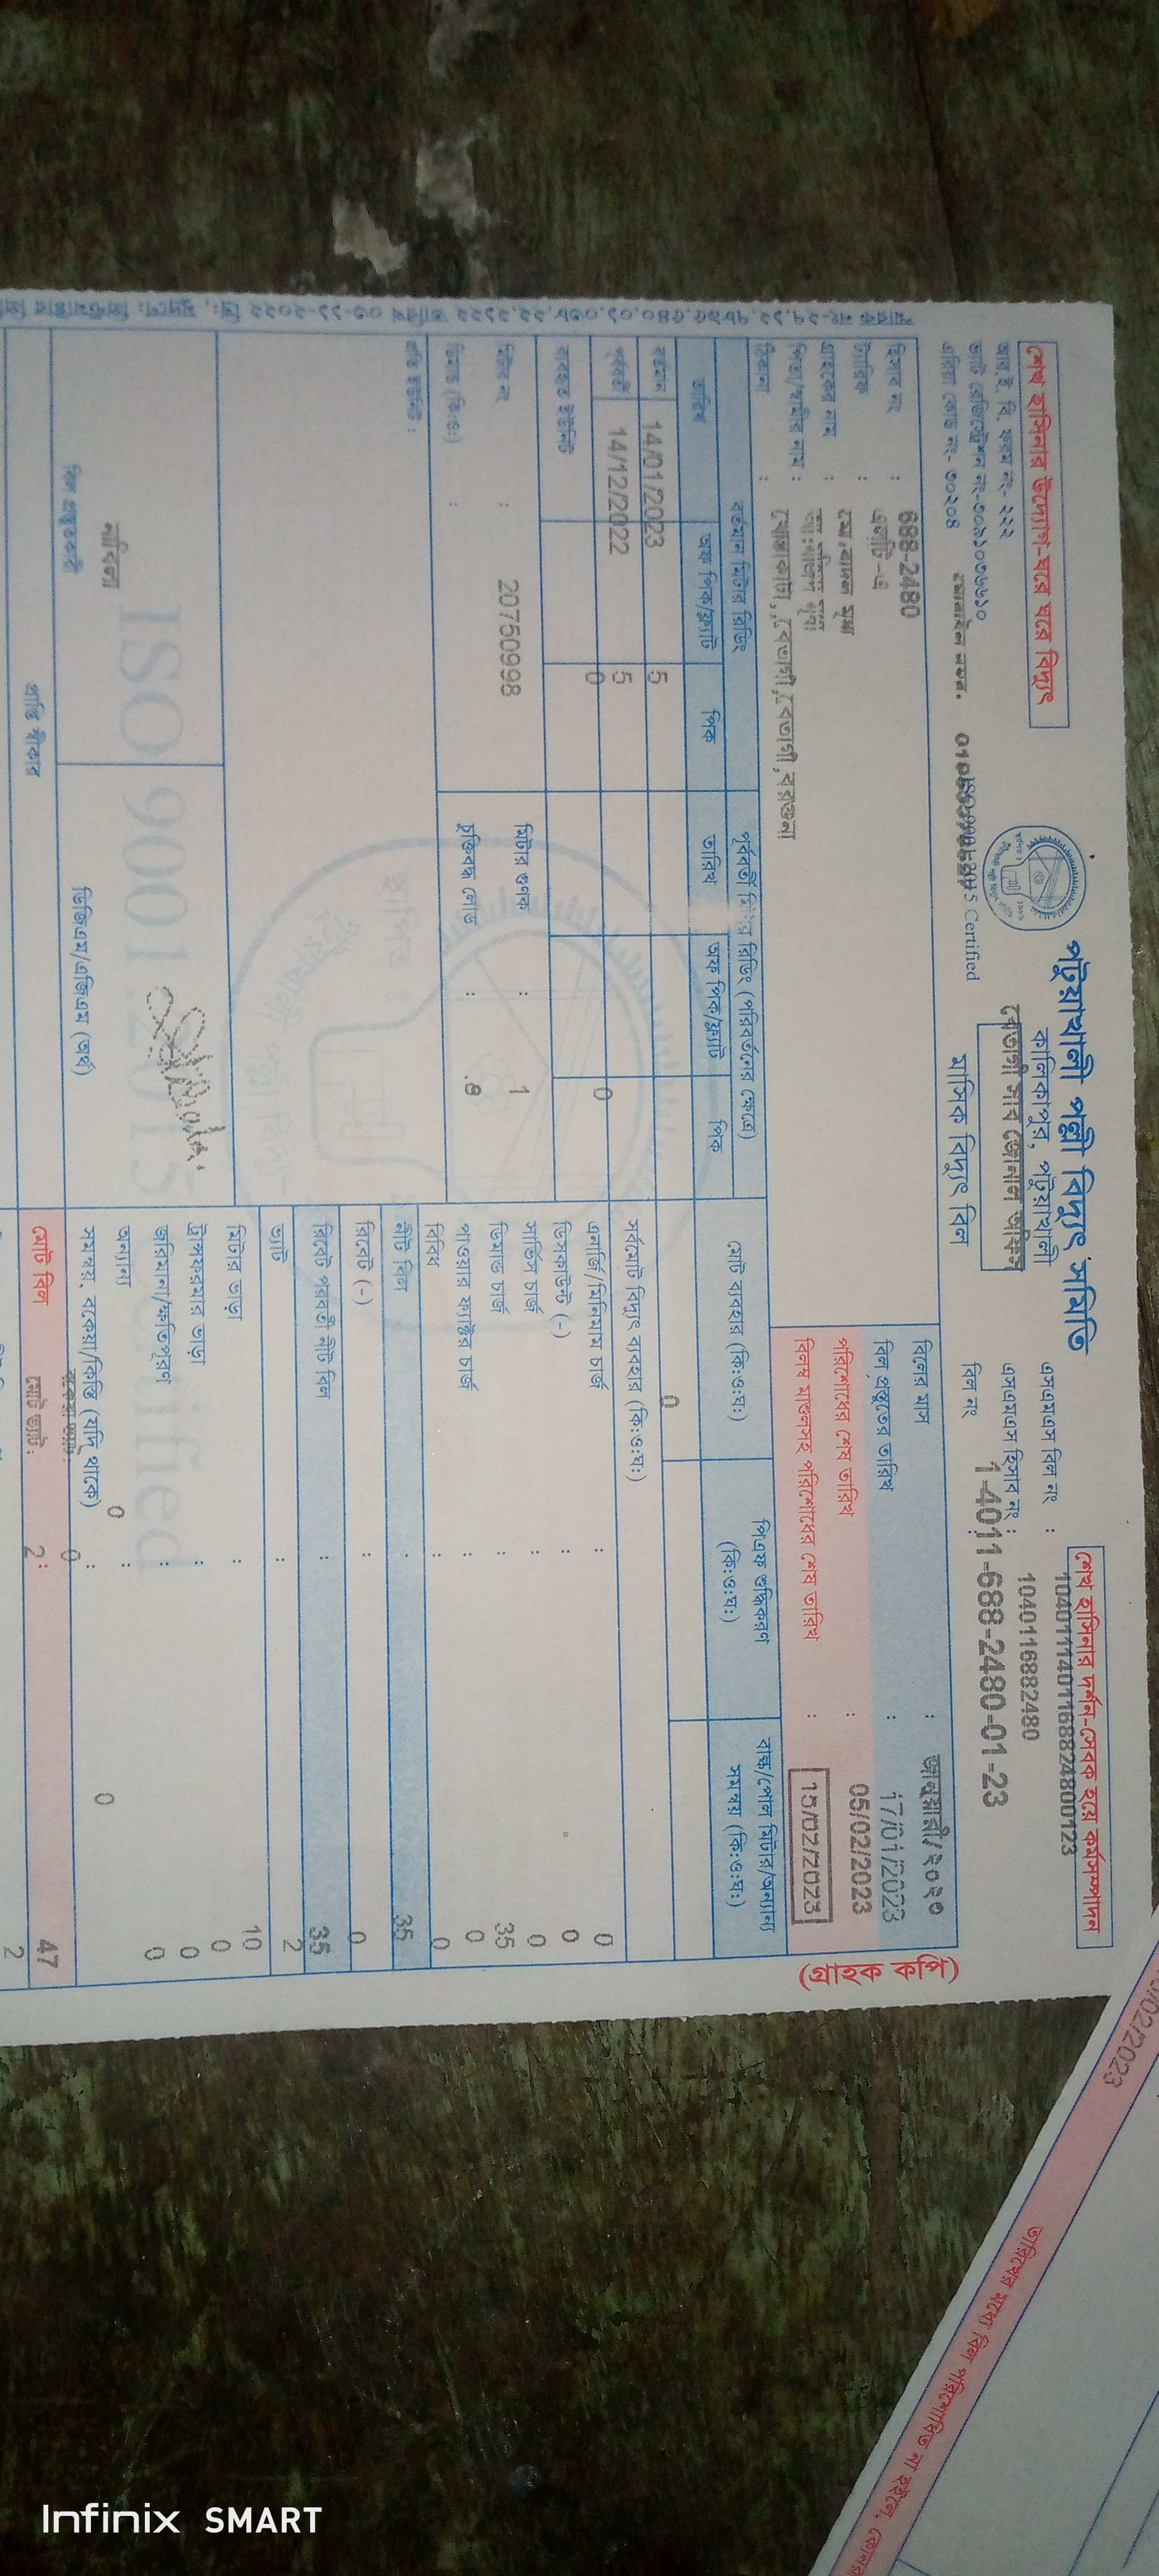 শেখ হাসিনার উদ্যোগ-ঘরে ঘরে বিদ্যুৎ
শেখ হাসিনার দর্শন-সেবক হয়ে কর্মসম্পাদন
পটুয়াখালী পল্লী বিদ্যুৎ সমিতি
কালিকাপুর, পটুয়াখালী
বেতাগী সাব জোনাল অফিস
মাসিক বিদ্যুৎ বিল
আর. ই. বি. ফরম নং- ২২২
এরিয়া কোড নং- ৩০২০৪
মোবাইল নম্বর.
5 Certified
এসএমএস বিল নং : 10401114011688248001​23
এসএমএস হিসাব নং : 1040116882480
বিল নং : 1-4011-688-2480-01-23
(গ্রাহক কপি)
হিসাব নং : 688-2480
ট্যারিফ : এলটি-এ
গ্রাহকের নাম : মোঃ বাদল মৃধা
পিতা/স্বামীর নাম :
ঠিকানা : ঝোপাকাটা, বেতাগী, বেতাগী, বরগুনা
বিলের মাস : জানুয়ারী/২০২৩
বিল প্রস্তুতের তারিখ : 17/01/2023
পরিশোধের শেষ তারিখ : 05/02/2023
বিলম্ব মাশুলসহ পরিশোধের শেষ তারিখ : 15/02/2023
বর্তমান মিটার রিডিং
পূর্ববর্তী মিটার রিডিং (পরিবর্তনের ক্ষেত্রে)
মোট ব্যবহার (কি:ও:ঘ:)
পিএফ শুদ্ধিকরণ (কি:ও:ঘ:)
বাল্ক/পোল মিটার/অন্যান্য সমন্বয় (কি:ও:ঘ:)
তারিখ অফ পিক/ফ্ল্যাট পিক তারিখ অফ পিক/ফ্ল্যাট পিক
বর্তমান 14/01/2023 5 0
পূর্ববর্তী 14/12/2022 5
ব্যবহৃত ইউনিট 0 0
সর্বমোট বিদ্যুৎ ব্যবহার (কি:ও:ঘ:)
মিটার নং : 20750998
মিটার গুণক : 1
ডিমান্ড (কি:ও:) :
চুক্তিবদ্ধ লোড : .8
প্রতি ইউনিট :
এনার্জি/মিনিমাম চার্জ : 0
ডিসকাউন্ট (-) : 0
সার্ভিস চার্জ : 0
ডিমান্ড চার্জ : 35
পাওয়ার ফ্যাক্টর চার্জ : 0
বিবিধ : 0
নীট বিল : 35
রিবেট (-) : 0
রিবেট পরবর্তী নীট বিল : 35
ভ্যাট : 2
মিটার ভাড়া : 10
ট্রান্সফরমার ভাড়া : 0
জরিমানা/ক্ষতিপূরণ : 0
অন্যান্য : 0
সমন্বয়, বকেয়া/কিস্তি (যদি থাকে) : 0 0
বকেয়া ভ্যাট: 0
মোট বিল : 47
মোট ভ্যাট: 2
2
ISO 9001:2015 Certified
বিল প্রস্তুতকারী
ডিজিএম/এজিএম (অর্থ)
প্রাপ্তি স্বীকার
/02/2023
তারিখের মধ্যে বিল পরিশোধিত না হইলে,
Infinix SMART